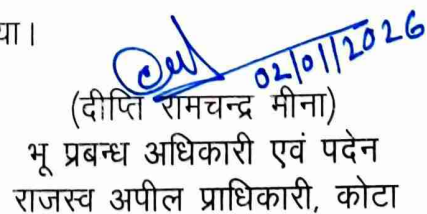 या।
02/01/2026
(दीप्ति रामचन्द्र मीना)
भू प्रबन्ध अधिकारी एवं पदेन
राजस्व अपील प्राधिकारी, कोटा